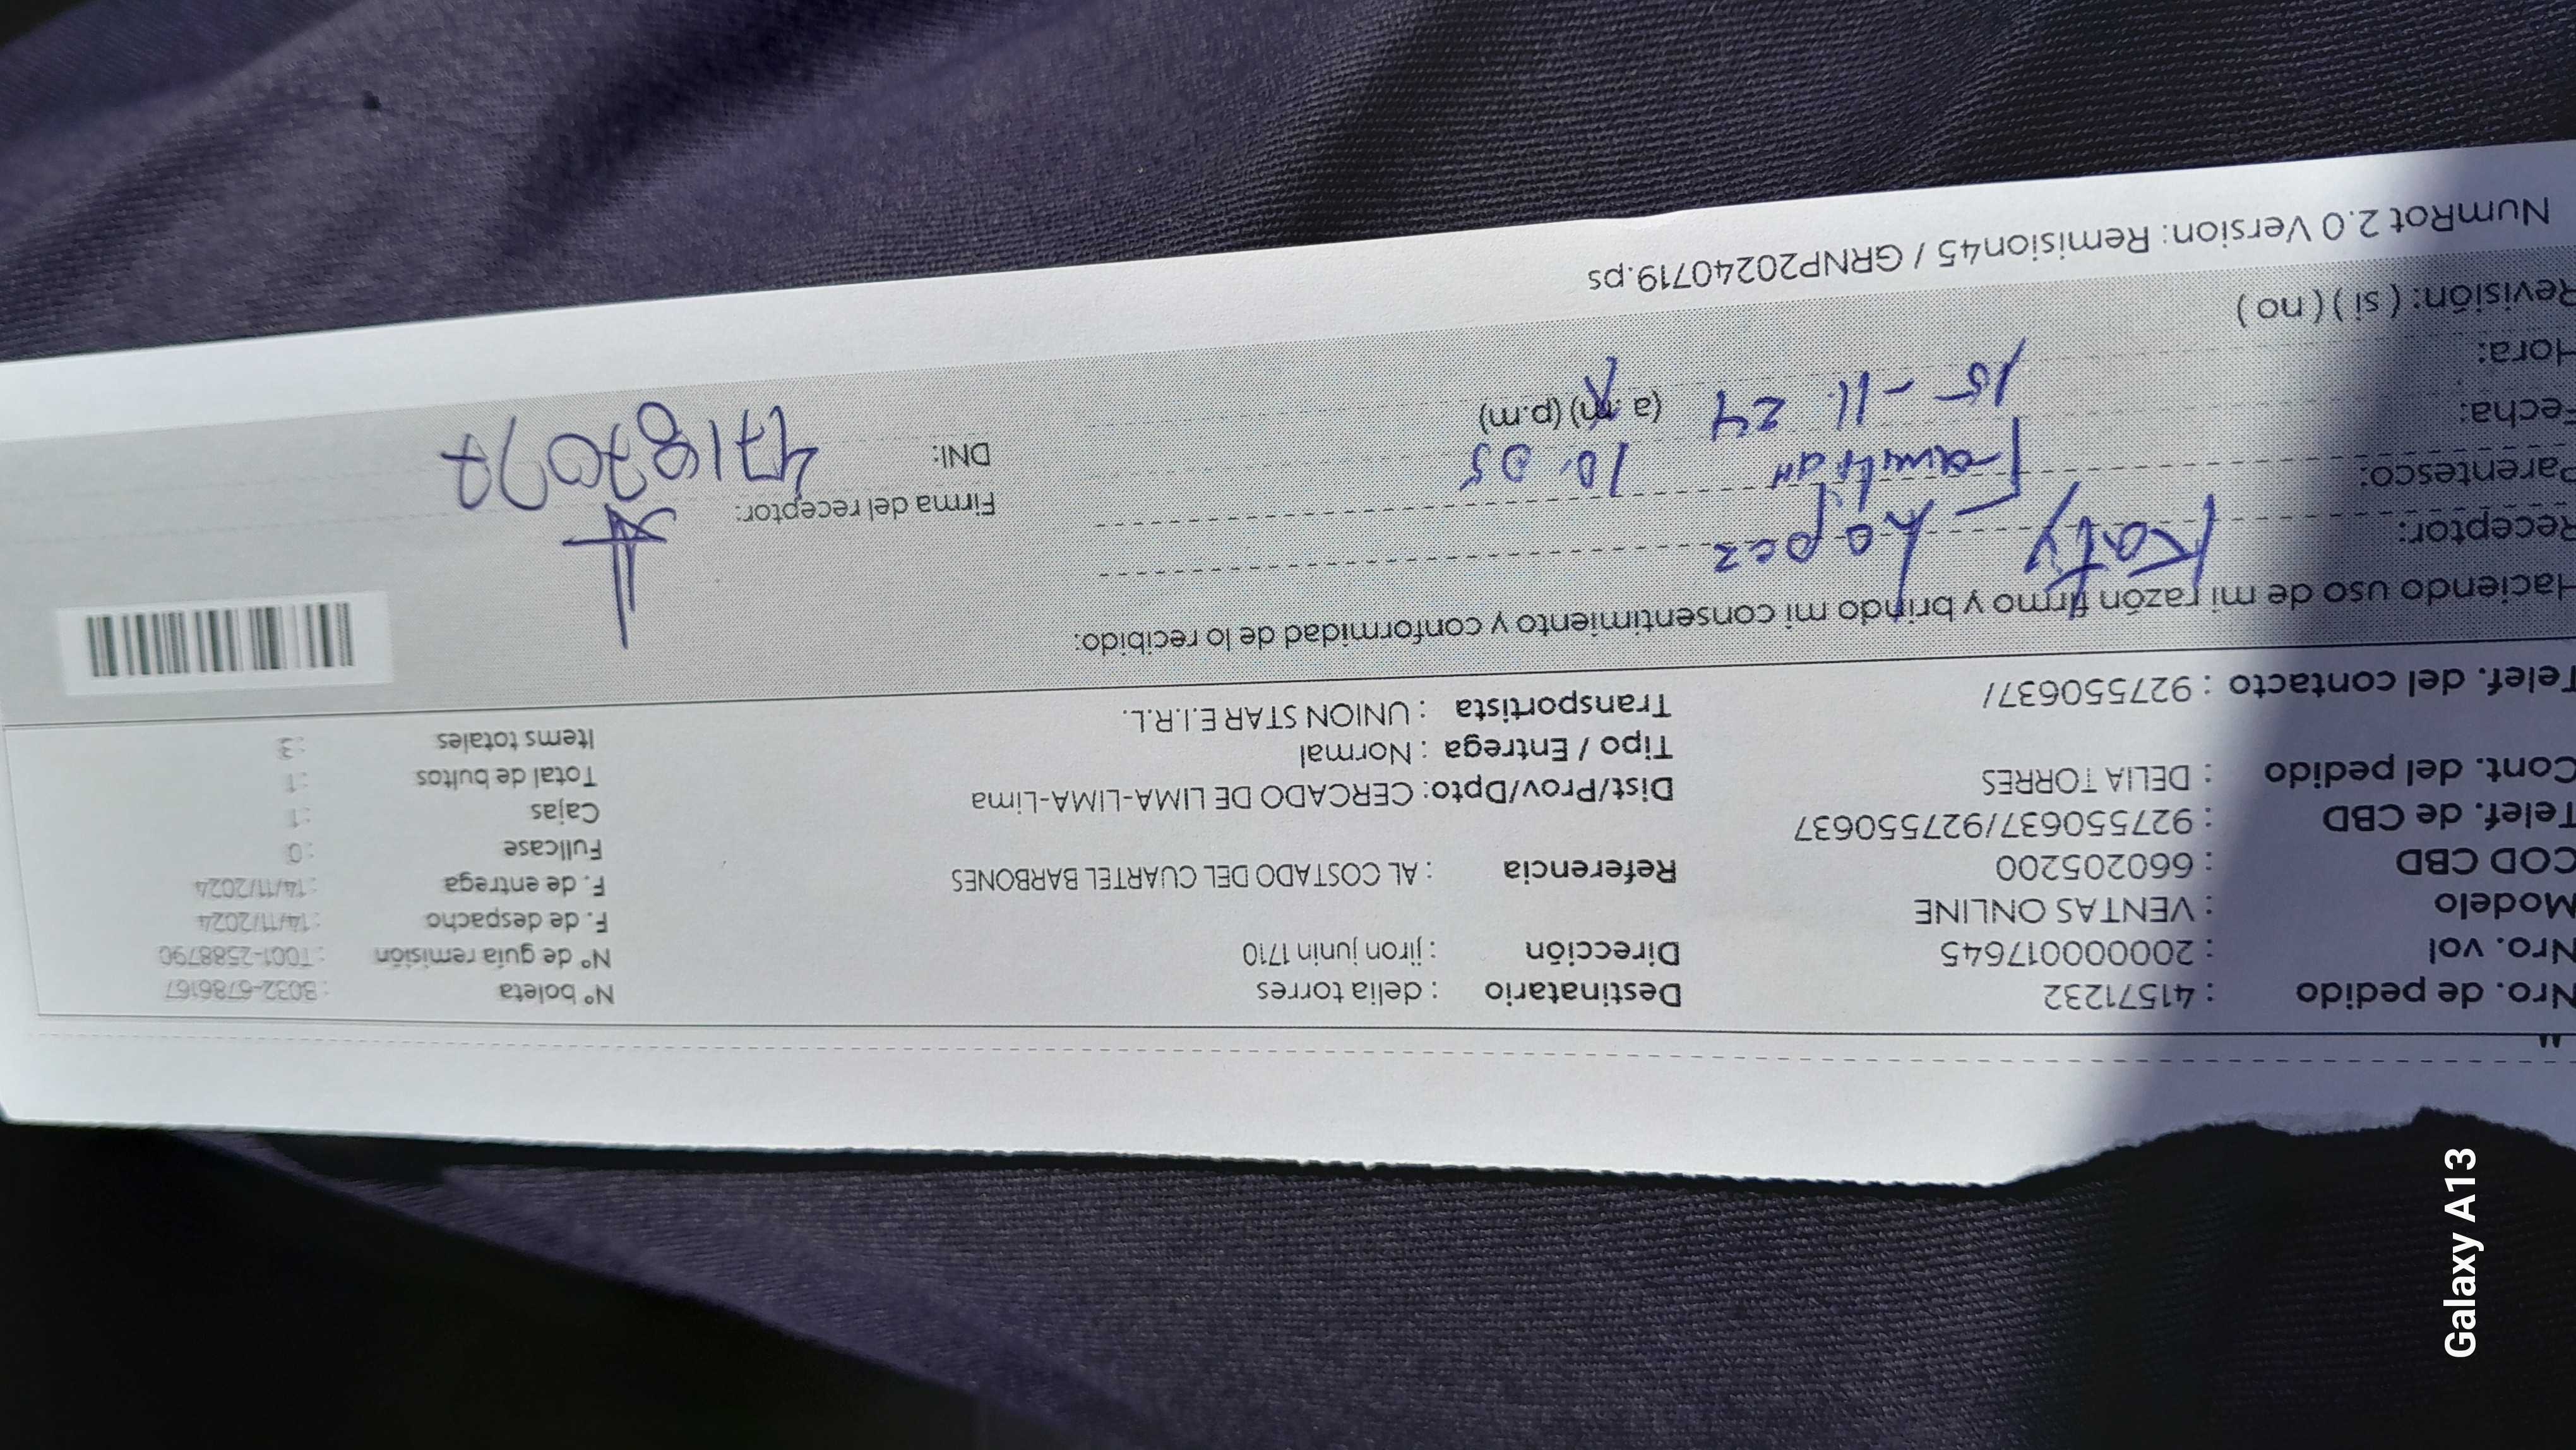 Nro. de pedido : 41571232 Destinatario : delia torres N° boleta : B032-6786167
Nro. vol : 20000017645 Dirección : jiron junin 1710 N° de guía remisión : T001-2588790
Modelo : VENTAS ONLINE F. de despacho : 14/11/2024
COD CBD : 660205200 Referencia : AL COSTADO DEL CUARTEL BARBONES F. de entrega : 14/11/2024
Telef. de CBD : 927550637/927550637 Fullcase : 0
Cont. del pedido : DELIA TORRES Dist/Prov/Dpto: CERCADO DE LIMA-LIMA-Lima Cajas : 1
Tipo / Entrega : Normal Total de bultos : 1
Telef. del contacto : 927550637/ Transportista : UNION STAR E.I.R.L. Items totales : 3
Haciendo uso de mi razón firmo y brindo mi consentimiento y conformidad de lo recibido.
Receptor: Katy Lopez Firma del receptor:
Parentesco: Familiar DNI: 47187077
Fecha: 15-11-24 10:05
Hora: (a.m) (p.m)
Revisión: ( si ) ( no )
NumRot 2.0 Version: Remision45 / GRNP20240719.ps
Galaxy A13